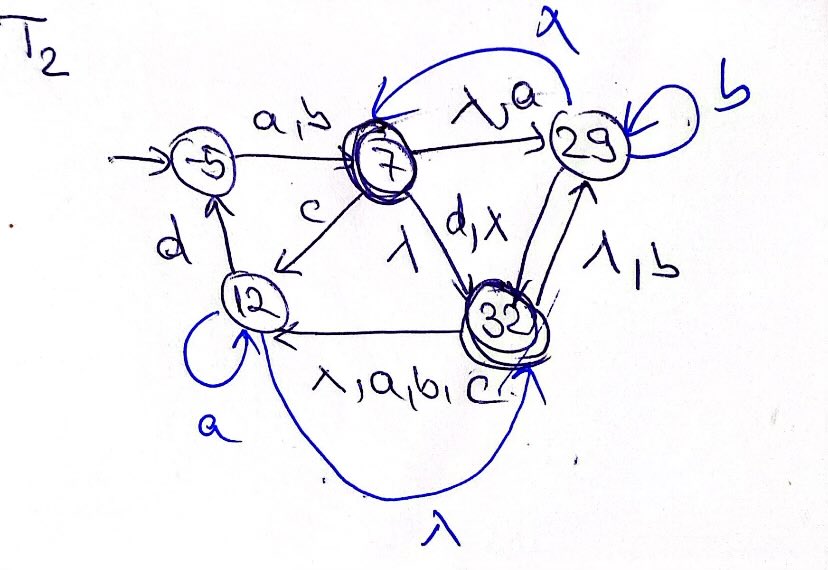 T2
λ
a,b
λ,a
b
-5
7
29
c
λ
d,λ
λ,b
d
12
32
λ,a,b,c
a
λ